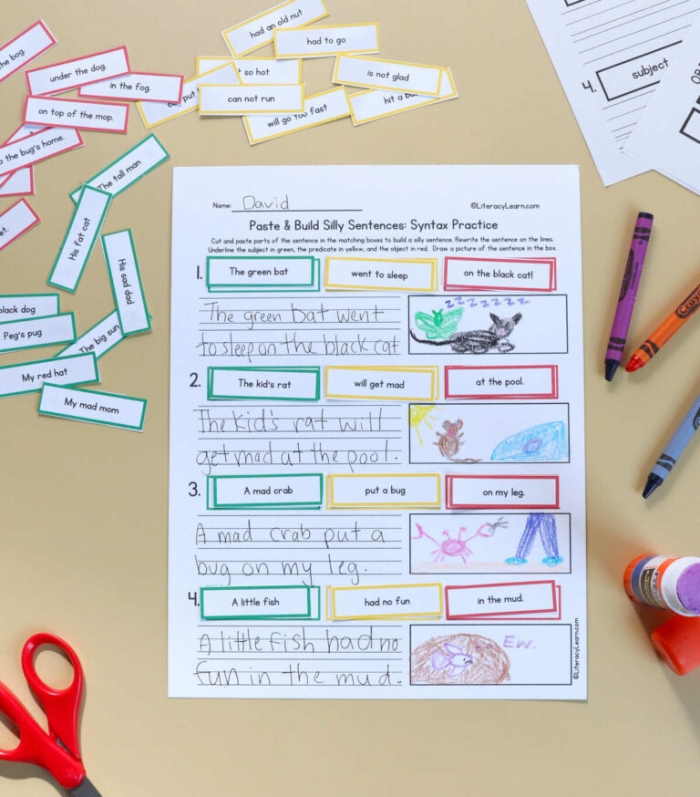 had an old nut
had to go
so hot
is not glad
can not run
will go too fast
hit a
put
the bog.
under the dog.
in the fog.
on top of the mop.
the bug's home.
The tall man
His fat cat
His sad dad
black dog
Peg's pug
The big sun
My red hat
My mad mom
4. subject
Name: David
©LiteracyLearn.com
Paste & Build Silly Sentences: Syntax Practice
Cut and paste parts of the sentence in the matching boxes to build a silly sentence. Rewrite the sentence on the lines.
Underline the subject in green, the predicate in yellow, and the object in red. Draw a picture of the sentence in the box.
1. The green bat went to sleep on the black cat!
The green bat went
to sleep on the black cat
zzzzzzz
2. The kid's rat will get mad at the pool.
The kid's rat will
get mad at the pool.
3. A mad crab put a bug on my leg.
A mad crab put a
bug on my leg.
4. A little fish had no fun in the mud.
A little fish had no
fun in the mud.
Ew.
©LiteracyLearn.com